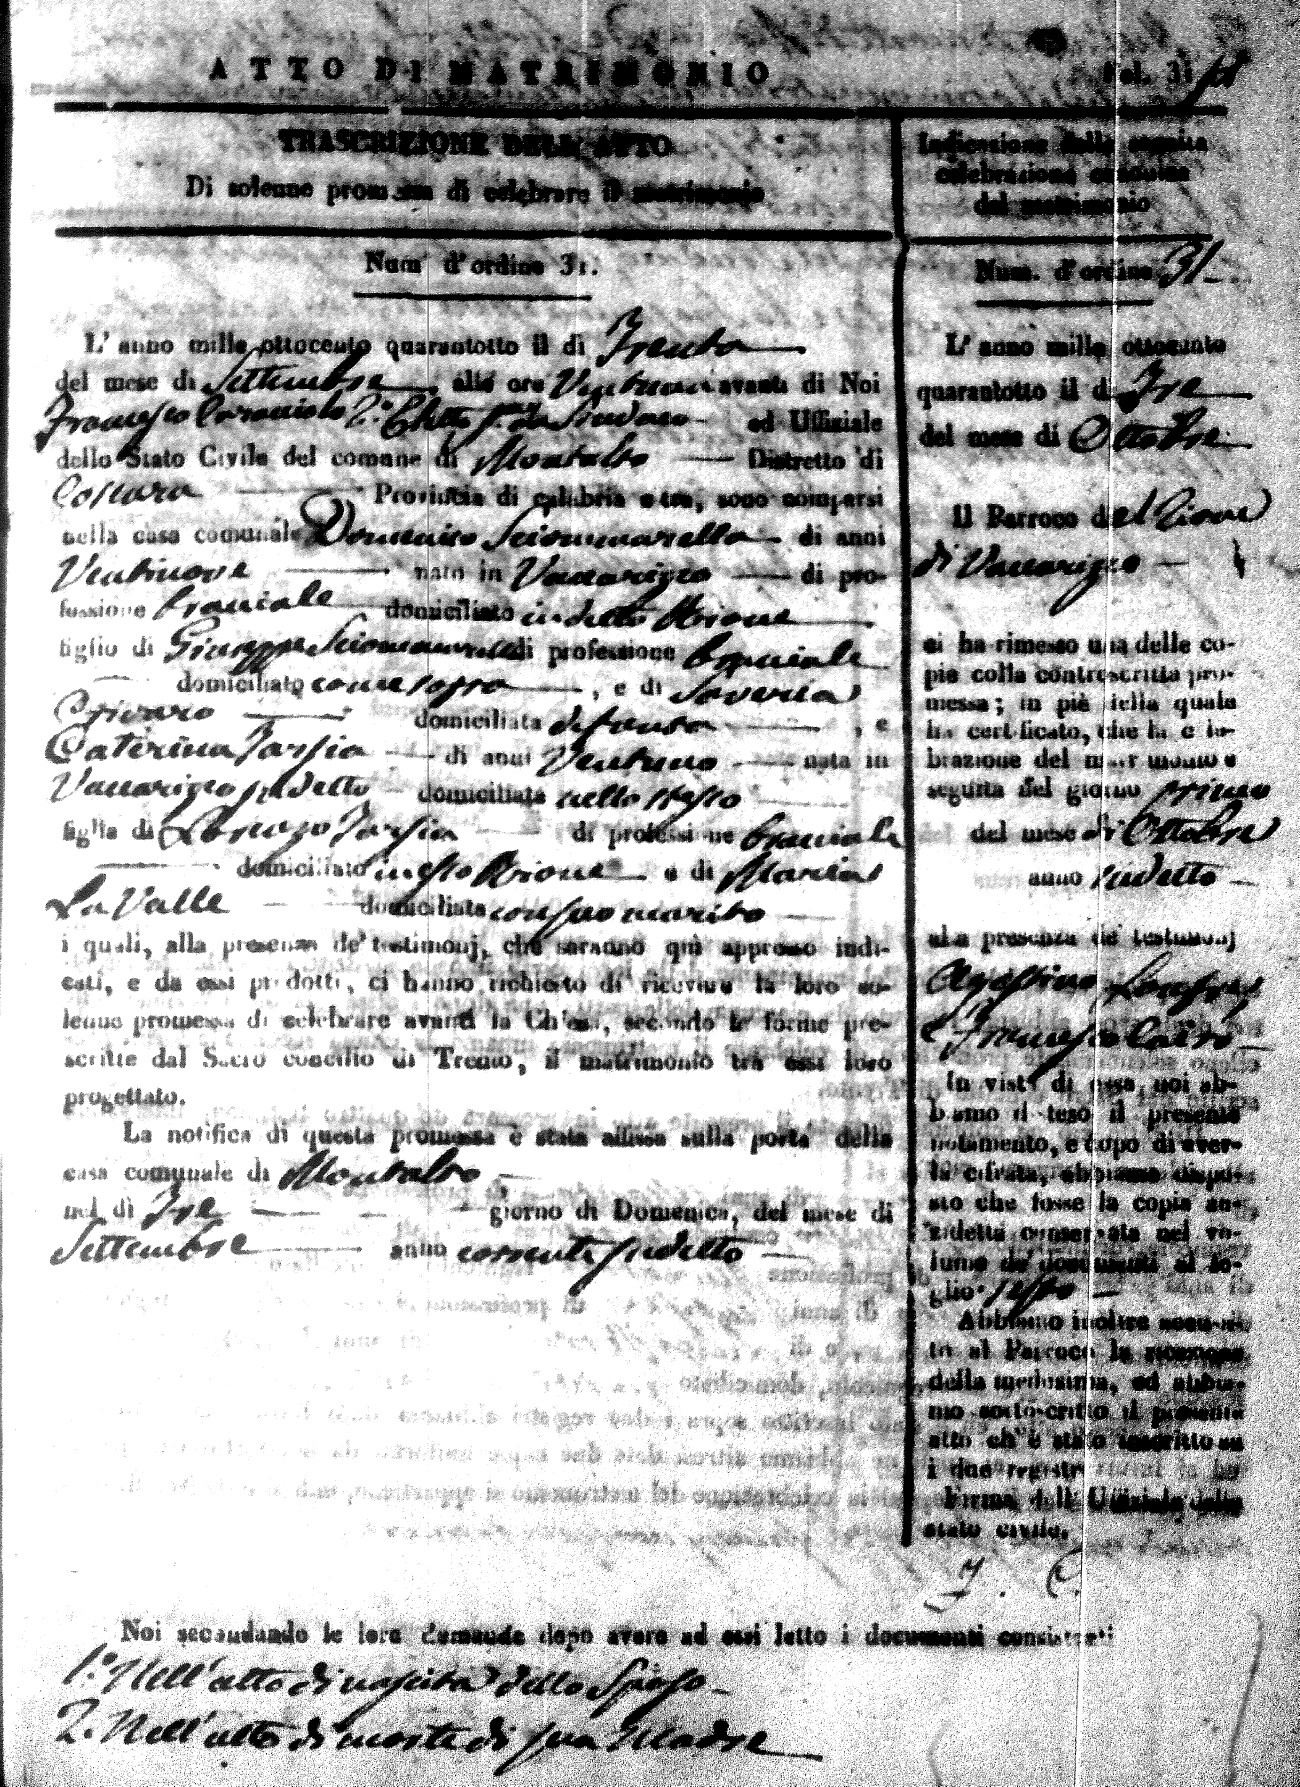 ATTO DI MATRIMONIO
Fol. 31
TRASCRIZIONE DELL' ATTO
Di solenne promessa di celebrare il matrimonio
Num° d'ordine 31.
L' anno mille ottocento quarantotto il dì Trenta
del mese di Settembre alle ore Ventuna avanti di Noi
Francesco 2.° Eletto Sindaco ed Uffiziale
dello Stato Civile del comune di Montalto Distretto di
Cosenza Provincia di calabria citra, sono comparsi
nella casa comunale Domenico Sciommarella di anni
Ventinove nato in Vaccarizzo di pro-
fessione bracciale domiciliato in detto Rione
figlio di Giuseppe Sciommarella di professione bracciale
domiciliato come sopra, e di Saveria
Crivaro domiciliata defunta, e
Caterina Tarsia di anni Ventuno nata in
Vaccarizzo sudetto domiciliata nello stesso
figlia di Lorenzo Tarsia di professione bracciale
domiciliato in esso Rione e di Maria
La Valle domiciliata con suo marito
i quali, alla presenza de' testimonj, che saranno quì appresso indi-
cati, e da essi prodotti, ci hanno richiesto di ricevere la loro so-
lenne promessa di celebrare avanti la Chiesa, secondo le forme pre-
scritte dal Sacro concilio di Trento, il matrimonio tra essi loro
progettato.
La notifica di questa promessa è stata affissa sulla porta della
casa comunale di Montalto
nel dì Tre giorno di Domenica, del mese di
Settembre anno corrente sudetto
Indicazione della seguita
celebrazione canonica
del matrimonio
Num. d'ordine 31
L' anno mille ottocento
quarantotto il dì Tre
del mese di Ottobre
Il Parroco del Rione
di Vaccarizzo
ci ha rimesso una delle co-
pie colla controscritta pro-
messa; in piè della quale
ha certificato, che la cele-
brazione del matrimonio è
seguita del giorno primo
del mese di Ottobre
anno sudetto
alla presenza de' testimonj
Agostino
e Francesco Cairo
In vista di essa, noi ab-
biamo disteso il presente
notamento, e dopo di aver-
la cifrata, abbiamo dispo-
sto che fosse la copia an-
zidetta conservata nel vo-
lume de' documenti al fo-
glio sesto
Abbiamo inoltre accusa-
to al Parroco la ricezione
della medesima, ed abbia-
mo sottoscritto il presente
atto ch' è stato inscritto su
i due registri
Firma dell' Uffiziale dello
stato civile.
Noi secondando le loro domande dopo avere ad essi letto i documenti consistenti
1.° Nell'atto di nascita dello Sposo
2. Nell'atto di morte di sua Madre